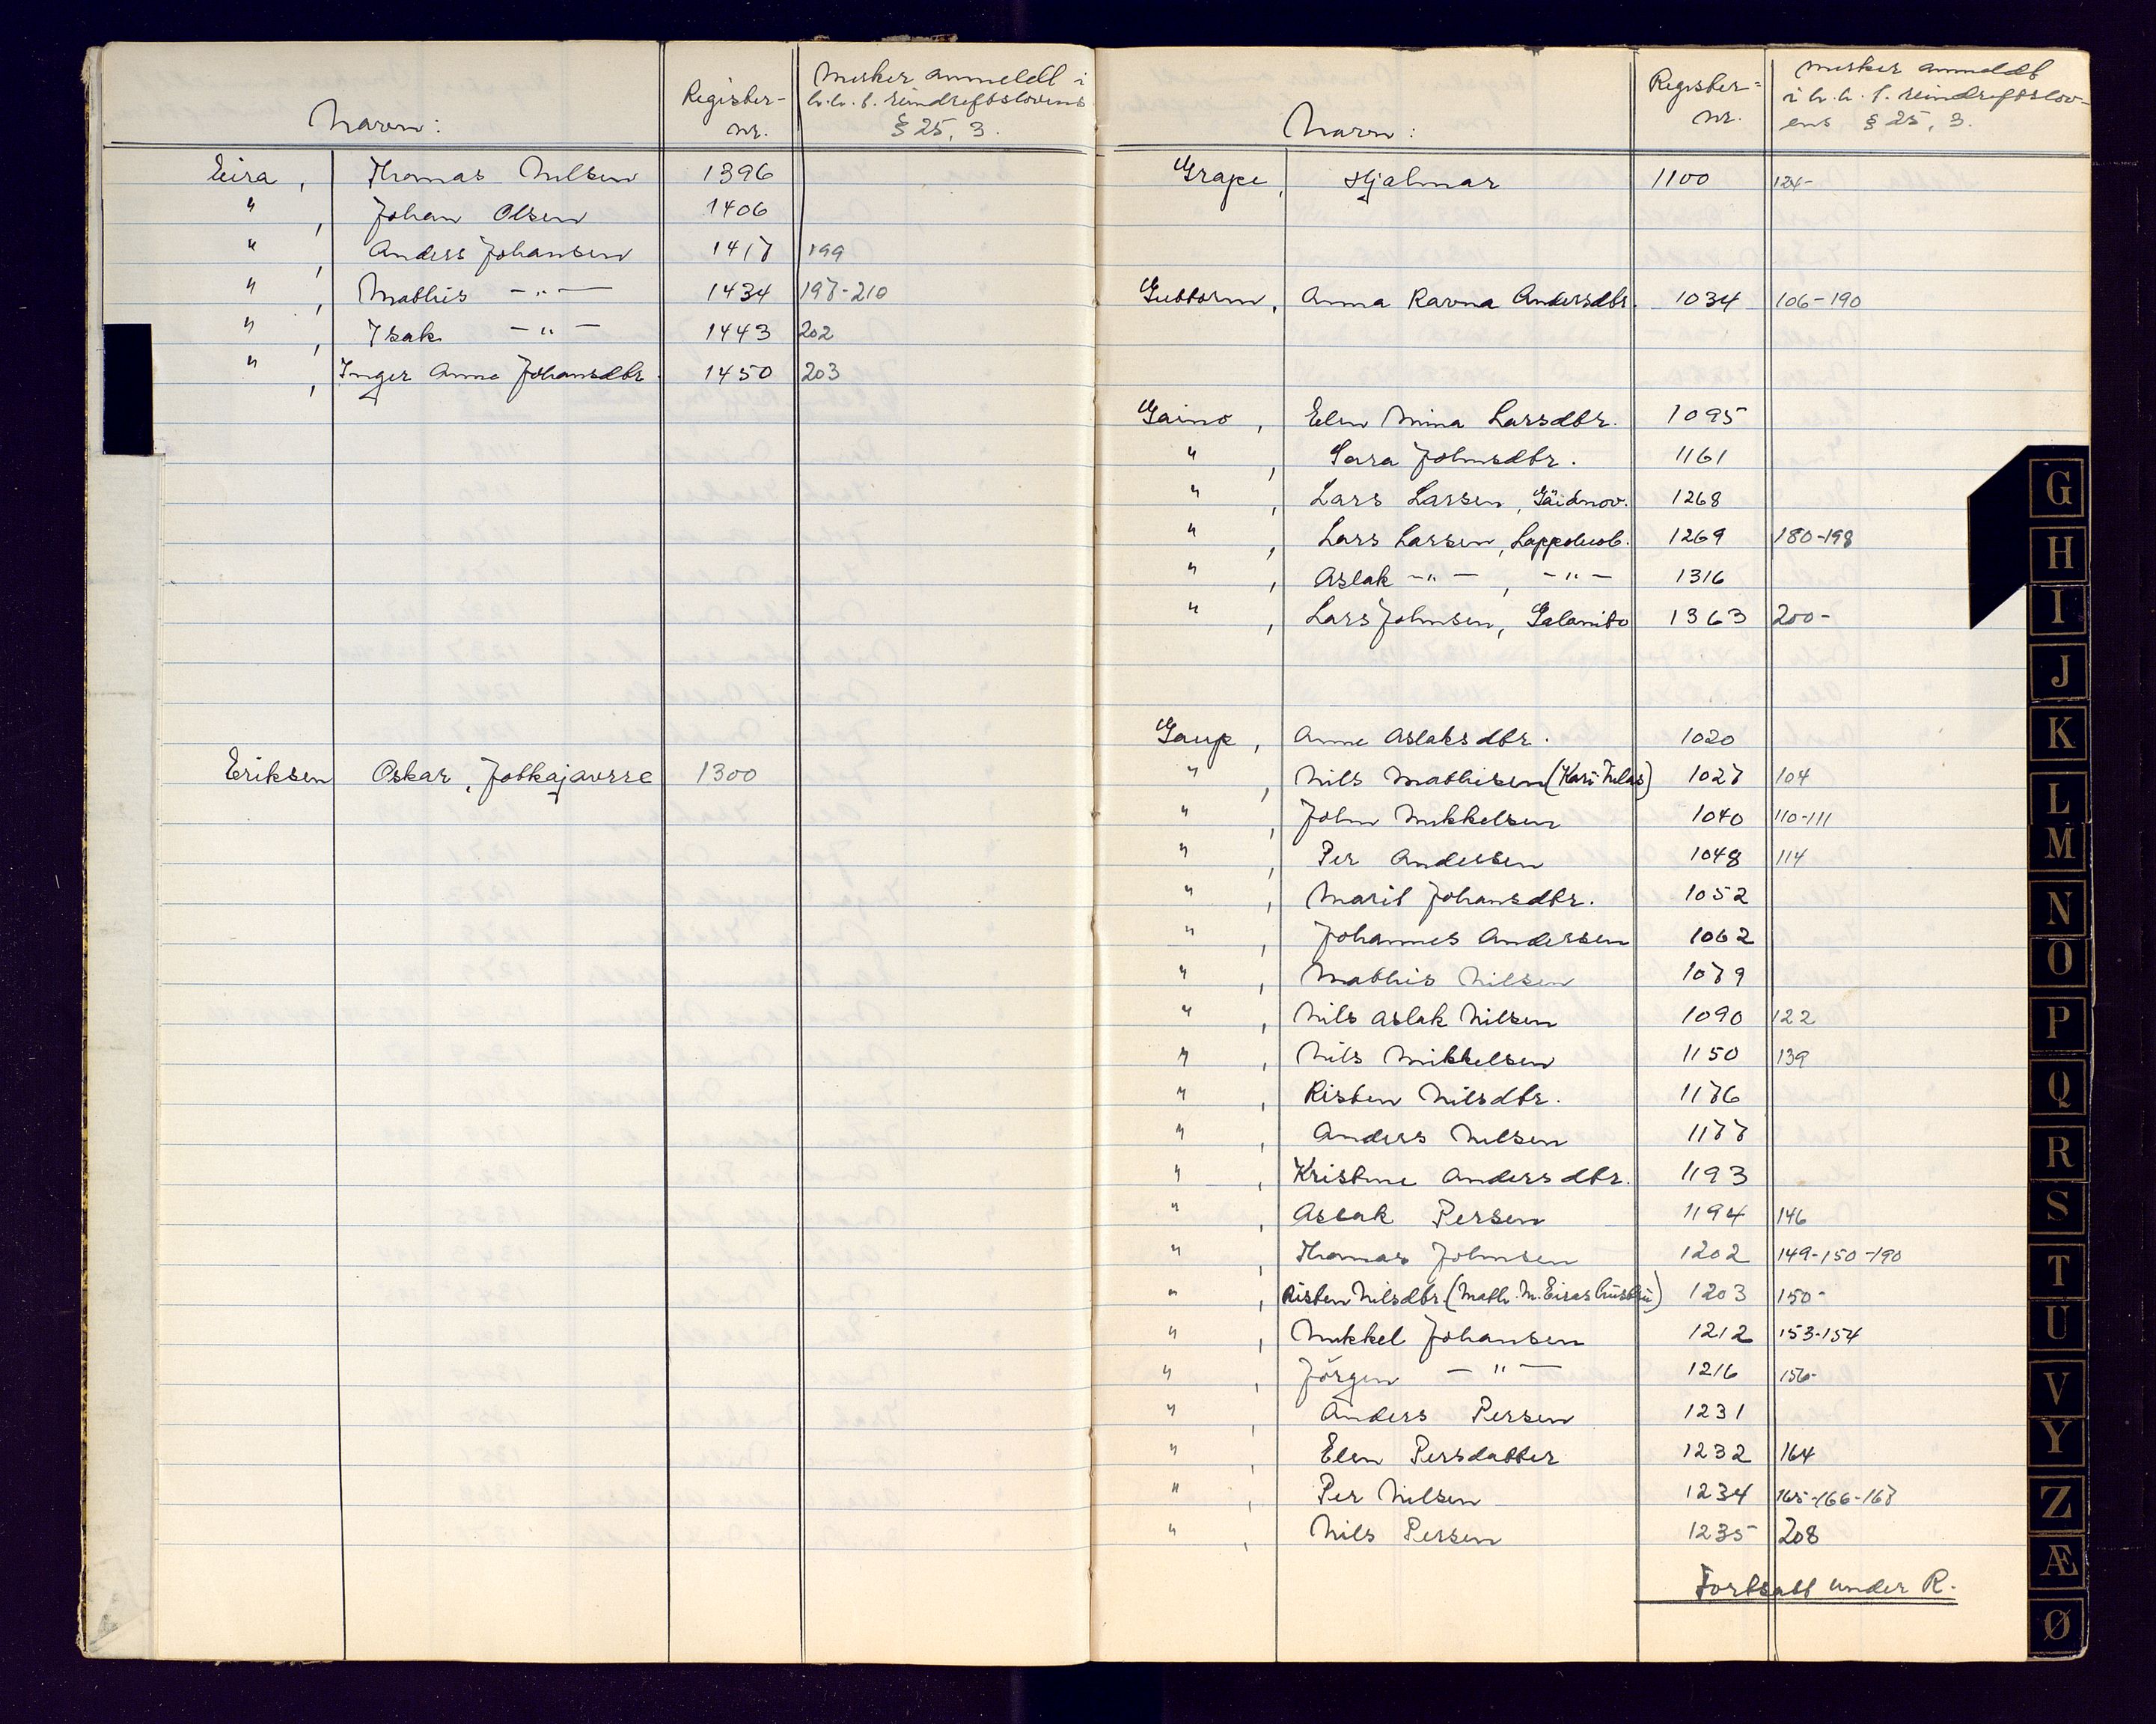 Navn:
Register-
nr.
Merker anmeldt i
h.h. t. reindriftslovens
§ 25, 3.
Eira, Thomas Nilsen 1396
" , Johan Olsen 1406
" , Anders Johansen 1417 199
" , Mathis -"- 1434 197-210
" , Isak -"- 1443 202
" , Inger Anne Johansdtr. 1450 203
Eriksen Oskar, Jotkajavrre 1300
Navn:
Register-
nr.
Merker anmeldt
i h.h. t. reindriftslov-
ens § 25, 3.
Grape, Hjalmar 1100 124-
Guttorm, Anna Ravna Andersdtr. 1034 106-190
Gaino, Elen Nina Larsdtr. 1095
" , Sara Johnsdtr. 1161
" , Lars Larsen, Gäidnov. 1268
" , Lars Larsen, Lappoluob. 1269 180-198
" , Aslak -"-, -"- 1316
" , Lars Johnsen, Galanito 1363 200-
Gaup, Anne Aslaksdtr. 1020
" , Nils Mathisen (Kari-Nilas) 1027 104
" , John Mikkelsen 1040 110-111
" , Per Andersen 1048 114
" , Marit Johansdtr. 1052
" , Johannes Andersen 1062
" , Mathis Nilsen 1079
" , Nils Aslak Nilsen 1090 122
" , Nils Mikkelsen 1150 139
" , Risten Nilsdtr. 1176
" , Anders Nilsen 1177
" , Kristine Andersdtr. 1193
" , Aslak Persen 1194 146
" , Thomas Johnsen 1202 149-150-190
" , Risten Nilsdtr. (Math. M. Eiras hustru) 1203 150-
" , Mikkel Johansen 1212 153-154
" , Jörgen -"- 1216 156-
" , Anders Persen 1231
" , Elen Persdatter 1232 164
" , Per Nilsen 1234 165-166-167
" , Nils Persen 1235 208
Fortsatt under R.
G
H
I
J
K
L
M
N
O
P
Q
R
S
T
U
V
Y
Z
Æ
Ø